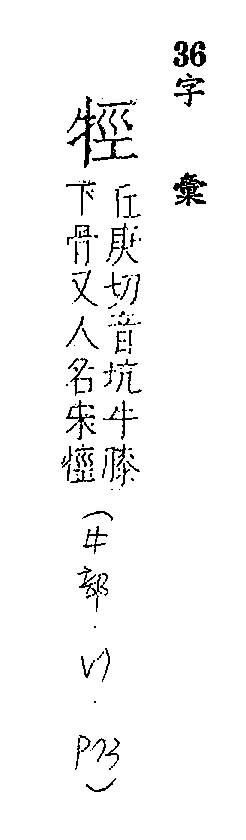 36字彙
牼
丘庚切音坑牛膝
下骨又人名宋牼
(牛部.
P73)